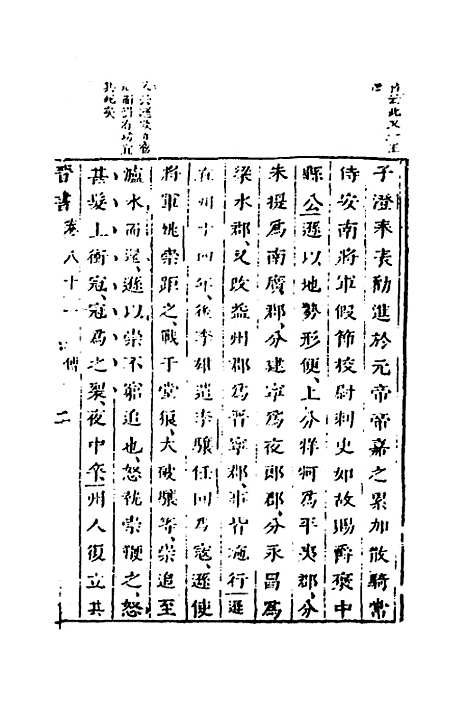 子澄奉表勸進於元帝帝嘉之累加散騎常
侍安南將軍假節校尉刺史如故賜爵褒中
縣公遜以地勢形便、上分牂牁爲平夷郡、分
朱提爲南廣郡、分建寧爲夜郎郡、分永昌爲
梁水郡、又改益州郡爲晉寧郡、事皆施行遜
在州十四年、後李雄遣李驤任回爲寇、遜使
將軍姚崇距之、戰于堂狼、大破驤等、崇追至
瀘水而還、遜以崇不窮追也、怒囚崇鞭之、怒
甚、髮上衝冠、冠爲之裂、夜中卒州人復立其
晉書卷八十一 傳 二